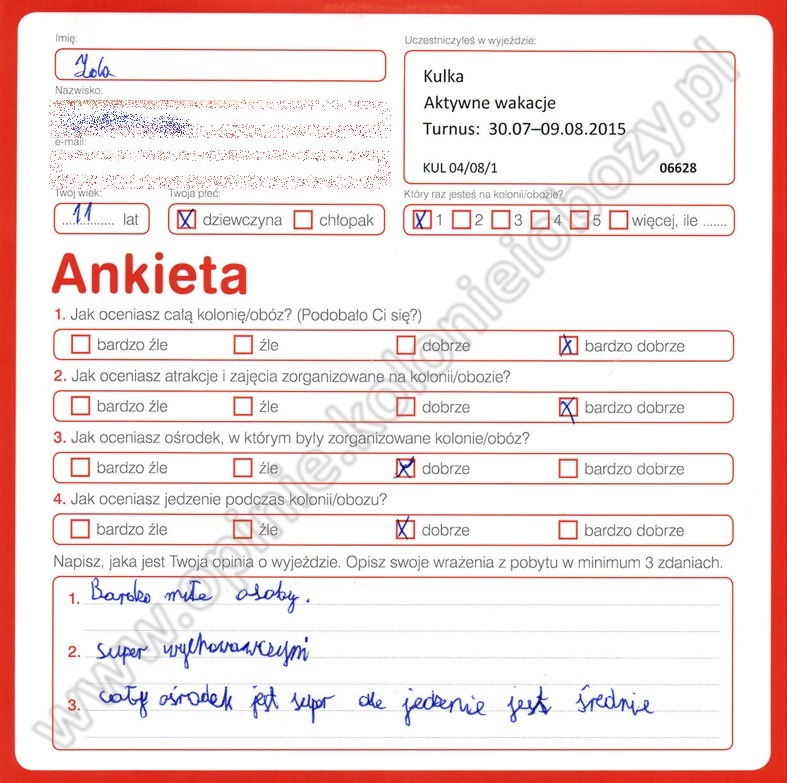 Imię:
Uczestniczyłeś w wyjeździe:
Kulka
Nazwisko:
Aktywne wakacje
Turnus: 30.07–09.08.2015
e-mail:
KUL 04/08/1 06628
Twój wiek: Twoja płeć: Który raz jesteś na kolonii/obozie?
11 lat X dziewczyna chłopak X 1 2 3 4 5 więcej, ile .......
Ankieta
1. Jak oceniasz całą kolonię/obóz? (Podobało Ci się?)
bardzo źle źle dobrze X bardzo dobrze
2. Jak oceniasz atrakcje i zajęcia zorganizowane na kolonii/obozie?
bardzo źle źle dobrze X bardzo dobrze
3. Jak oceniasz ośrodek, w którym były zorganizowane kolonie/obóz?
bardzo źle źle X dobrze bardzo dobrze
4. Jak oceniasz jedzenie podczas kolonii/obozu?
bardzo źle źle X dobrze bardzo dobrze
Napisz, jaka jest Twoja opinia o wyjeździe. Opisz swoje wrażenia z pobytu w minimum 3 zdaniach.
1. Bardzo miłe osoby.
2. super
3. cały ośrodek jest super ale jedzenie jest średnie
www.opinie.kolonieiobozy.pl